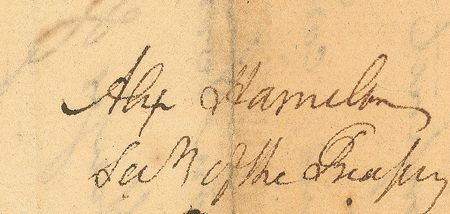 Alex Hamilton
Sec'y of the Treasury